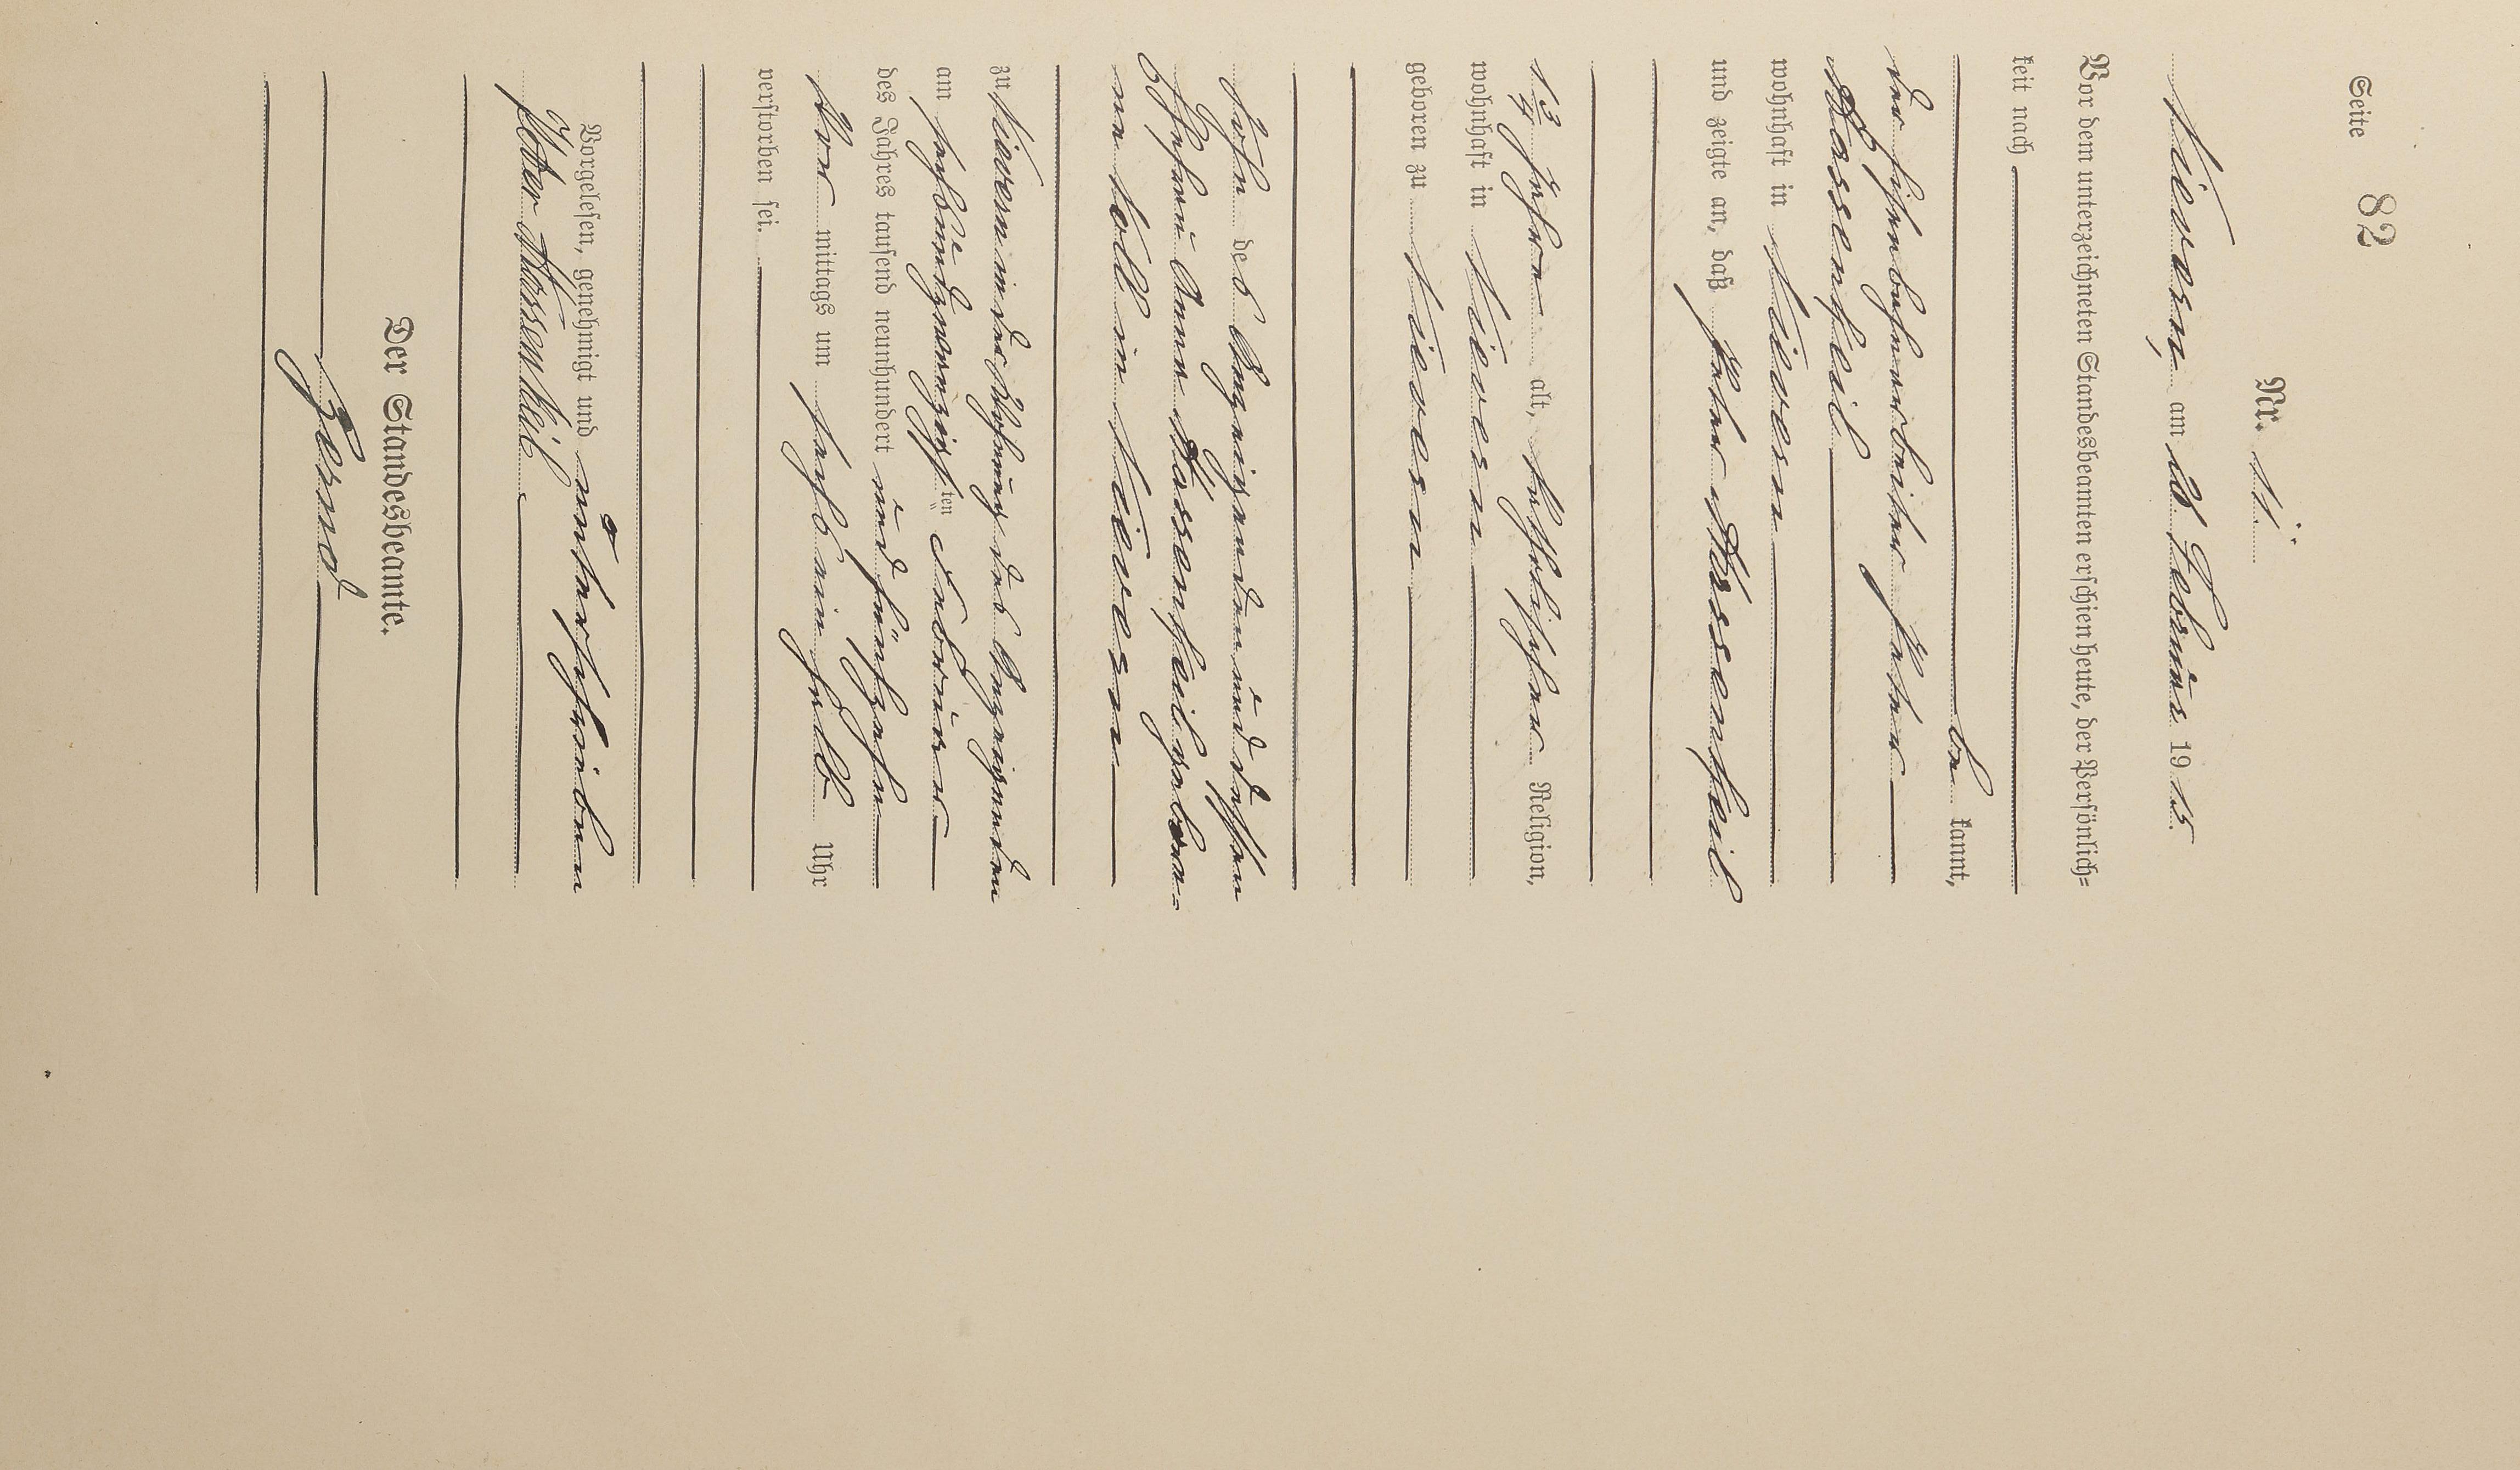 Seite 82
Nr. 11.
Nievern, am 26 Februar 1915.
Vor dem unterzeichneten Standesbeamten erschien heute, der Persönlich-
keit nach
be kannt,
der Eisenbahnarbeiter Peter
Massenkeil
wohnhaft in Nievern
und zeigte an, daß Peter Massenkeil
1 3/4 Jahre alt, katholischer Religion,
wohnhaft in Nievern
geboren zu Nievern
Sohn des Anzeigenden und dessen
Ehefrau Anna Massenkeil gebore-
ne Noll in Nievern
zu Nievern in der Wohnung des Anzeigenden
am sechsundzwanzigsten Februar
des Jahres tausend neunhundert und fünfzehn
Vor mittags um sechs ein halb Uhr
verstorben sei.
Vorgelesen, genehmigt und unterschrieben
Peter Massenkeil
Der Standesbeamte.